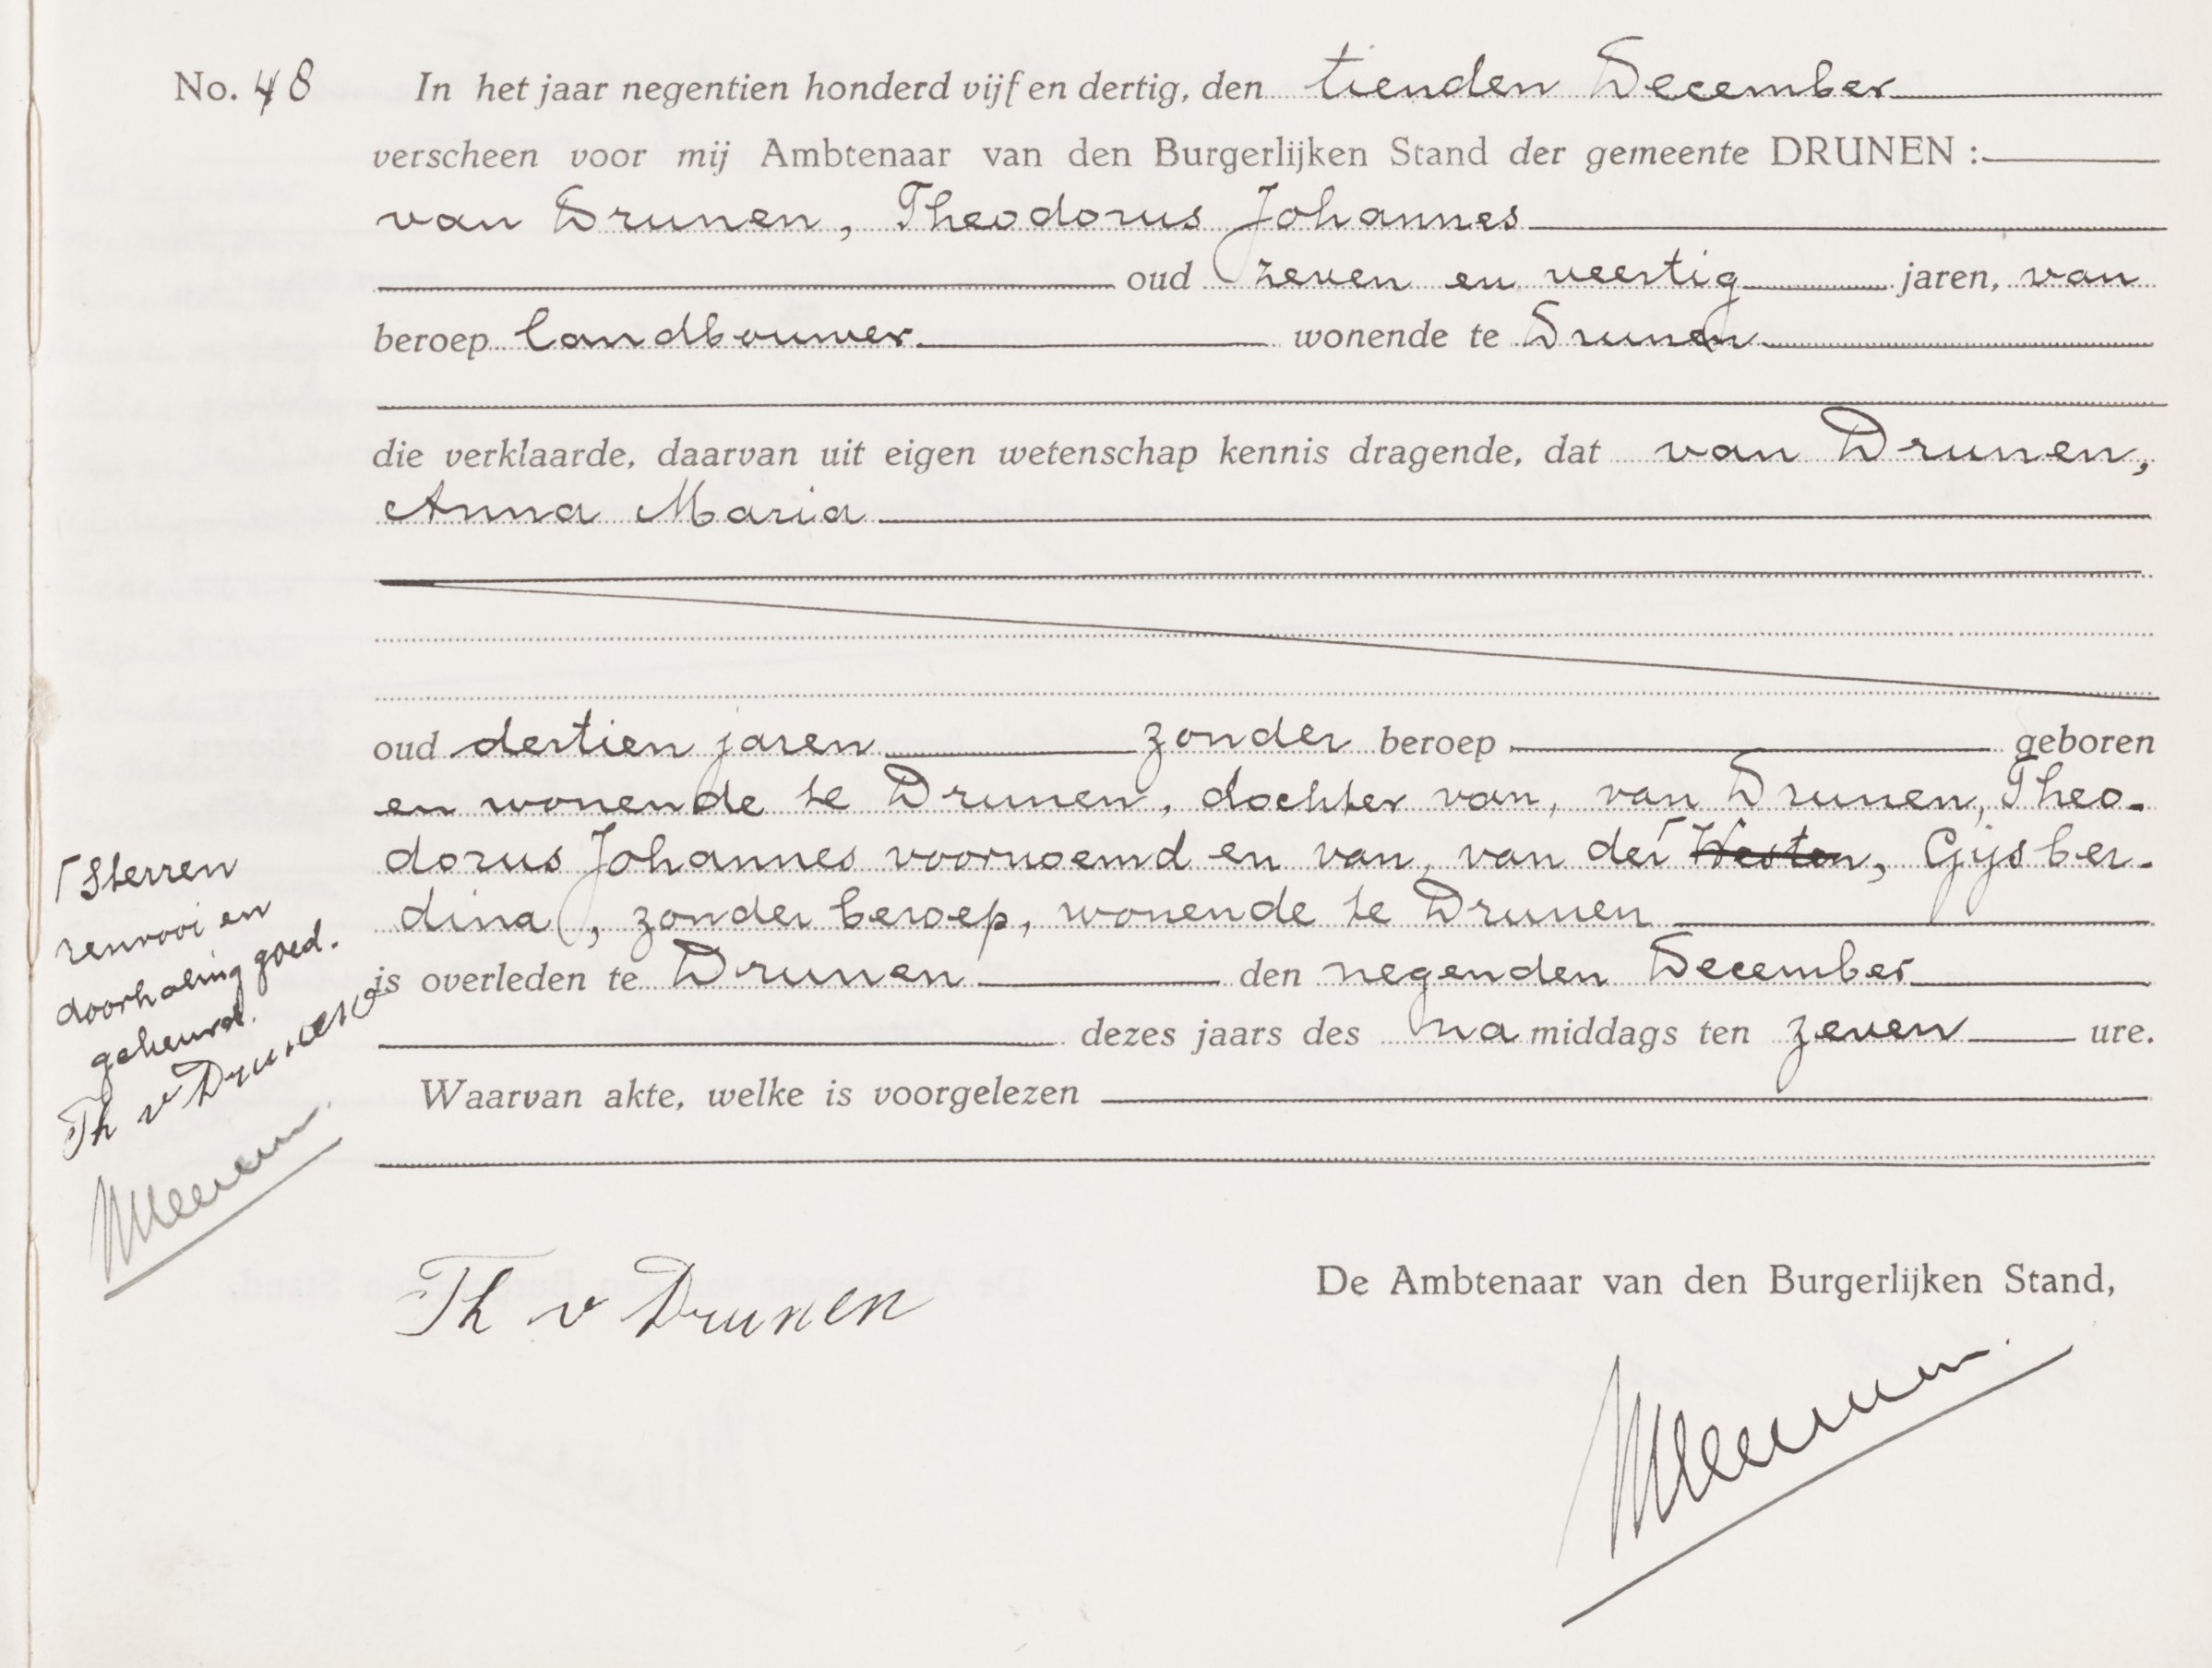 No. 48 In het jaar negentien honderd vijf en dertig, den tienden December
verscheen voor mij Ambtenaar van den Burgerlijken Stand der gemeente DRUNEN :
van Drunen, Theodorus Johannes
oud zeven en veertig jaren, van
beroep landbouwer wonende te Drunen
die verklaarde, daarvan uit eigen wetenschap kennis dragende, dat van Drunen,
Anna Maria
oud dertien jaren zonder beroep geboren
en wonende te Drunen, dochter van, van Drunen, Theo-
dorus Johannes voornoemd en van, van der Westen, Gijsber-
dina, zonder beroep, wonende te Drunen
is overleden te Drunen den negenden December
dezes jaars des na middags ten zeven ure.
Waarvan akte, welke is voorgelezen
Sterren
renvooi en
doorhaling goed-
gekeurd.
Th v Drunen
Th v Drunen
De Ambtenaar van den Burgerlijken Stand,